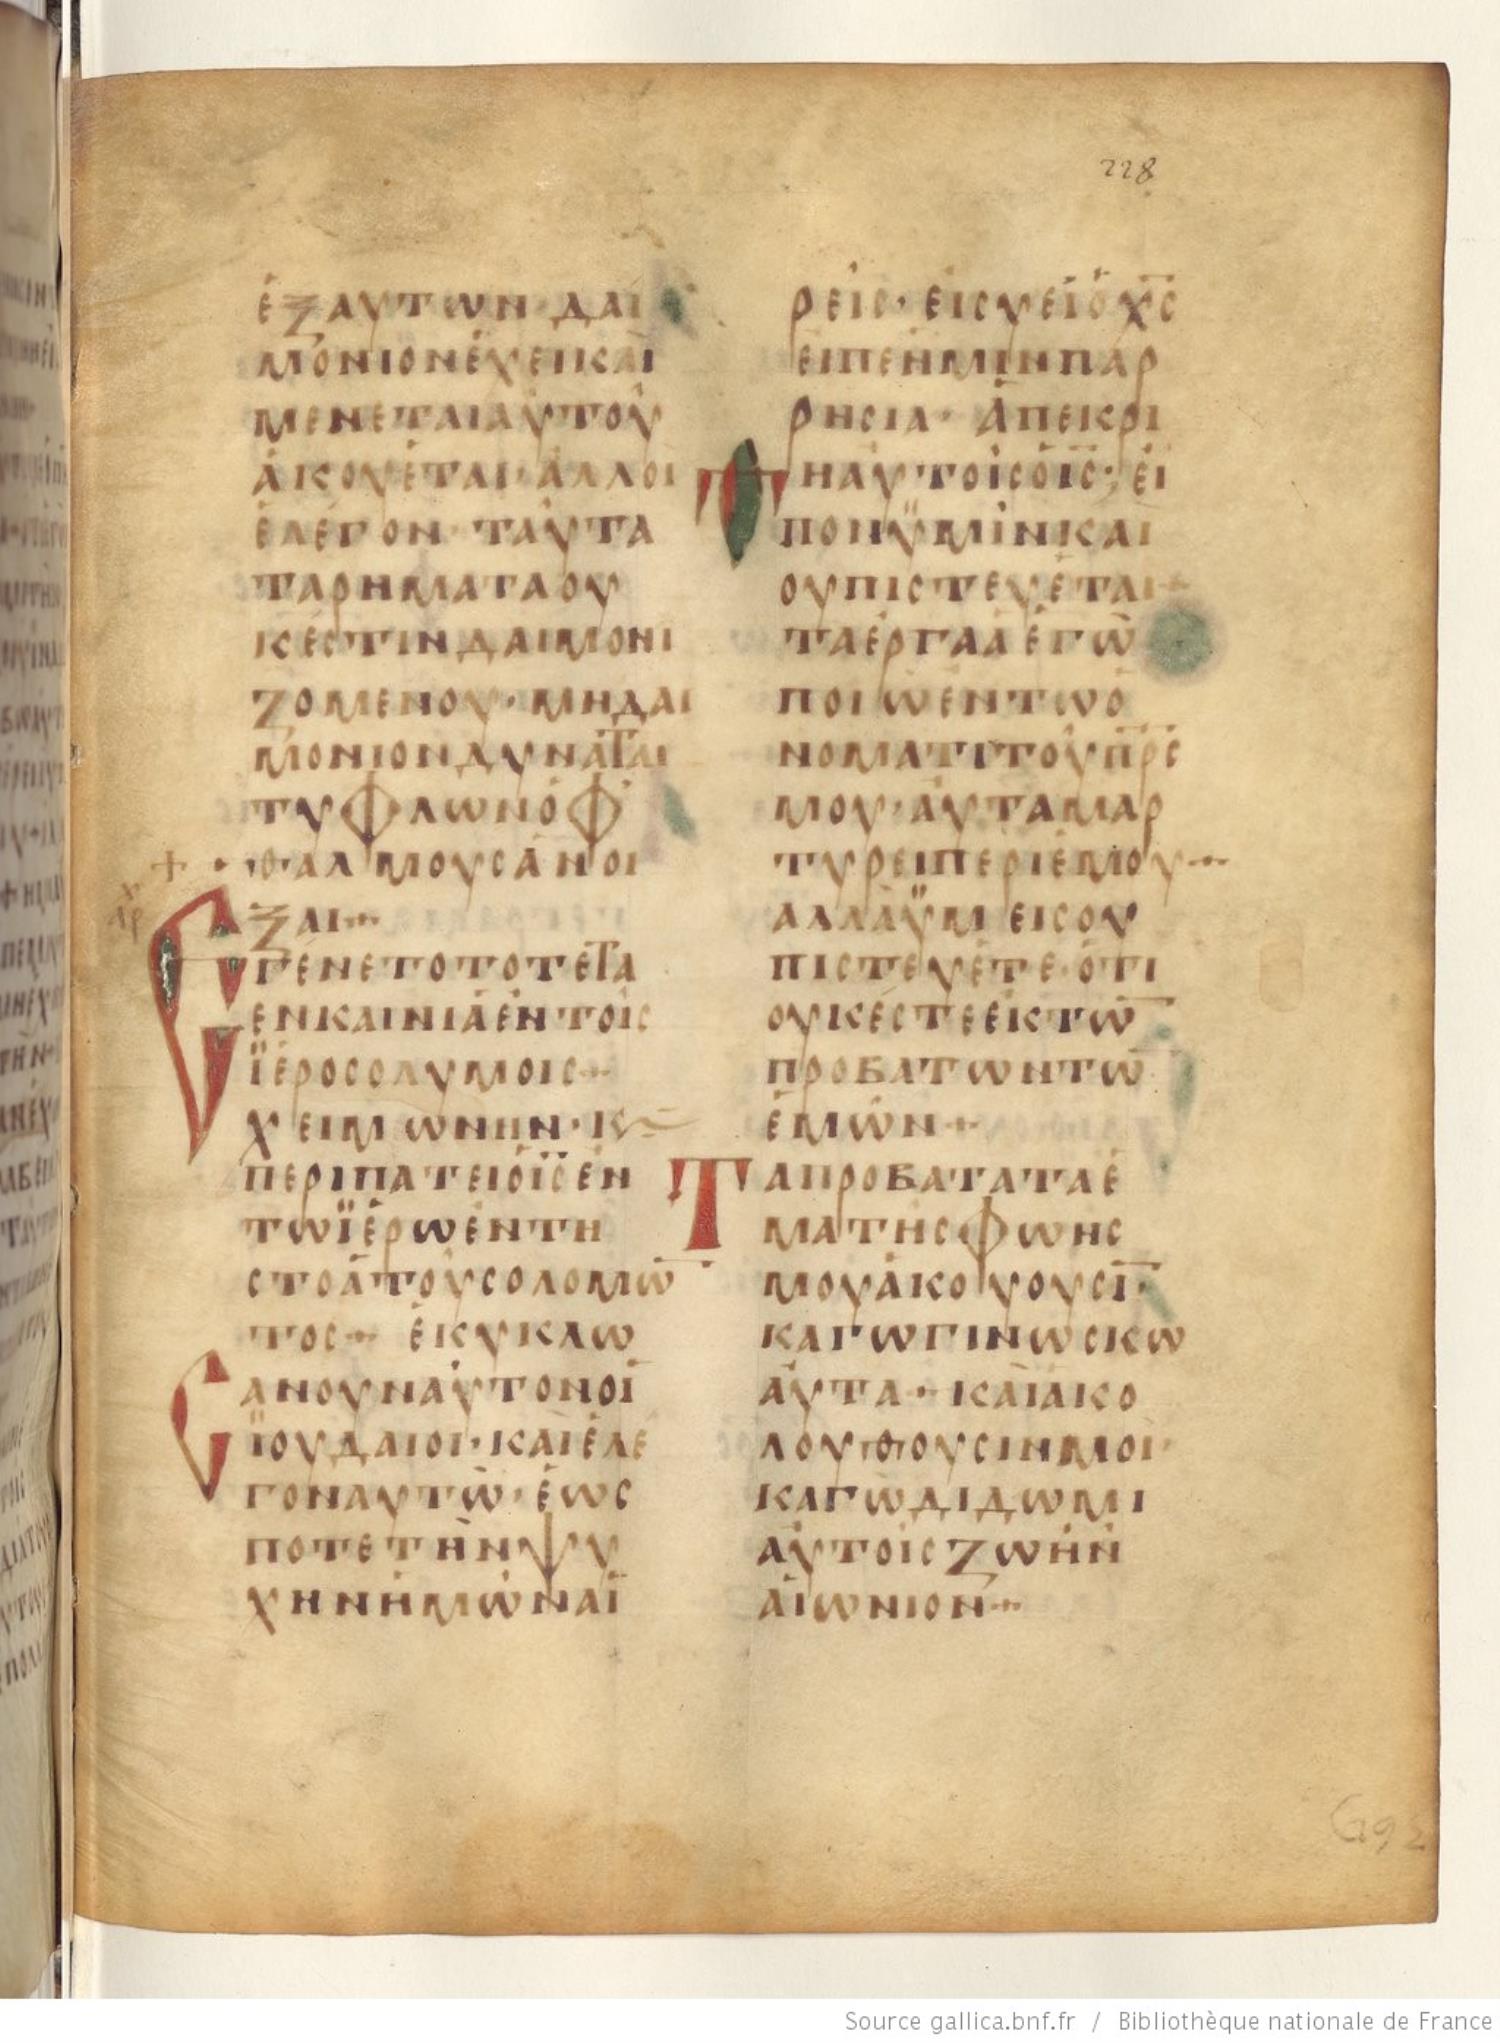 228
ἐξαυτων· δαι
μονιονἔχει και
μενεται αυτου
ἀκουεται· ἀλλοι
ἐλέγον· ταυτα
ταρηματα ου
κέστιν δαιμονι
ζομενου· μηδαι
μονιον δυναται
τυφλων ὀφ
θαλμους ἀνοι
ξαι
Εγένετο τοτε τα
ενκαινια ἐν τοις
ϊεροσολυμοις
χειμων ην· κ
περιπατει ὁ ι̅ς̅ ἐν
τω ϊερω ἐν τη
στοα του σολομω̅
τος ἐκυκλω
Cαν ουν αυτον οι
ϊουδαιοι· και ἐλε
γον αυτω· ἑως
ποτε την ψυ
χην ἡμων αι
ρεις· εἰ συ εἶ ὁ χ̅ς̅
ειπε ἡμιν παρ
ρησια· Ἀπεκρι
Θη αυτοις ὁ ι̅ς̅· ἐι
πον ϋμιν και
ου πιστευεται
τα ἐργα ἁ ἐγω
ποιω ἐν τω ὀ
νοματι του π̅ρ̅ς̅
μου· αυτα μαρ
τυρει περι ἐμου
αλλα ϋμεις ου
πιστευετε· ὁτι
ουκ ἐστε ἐκ τω̅
προβατων τω̅
ἐμων
Τα προβατα τα ἐ
μα της φωνης
μου ἀκουουσι̅·
καγω γινωσκω
αυτα· και ἀκο
λουθουσιν μοι·
καγω διδωμι
αυτοις ζωην
αιωνιον
Source gallica.bnf.fr / Bibliothèque nationale de France